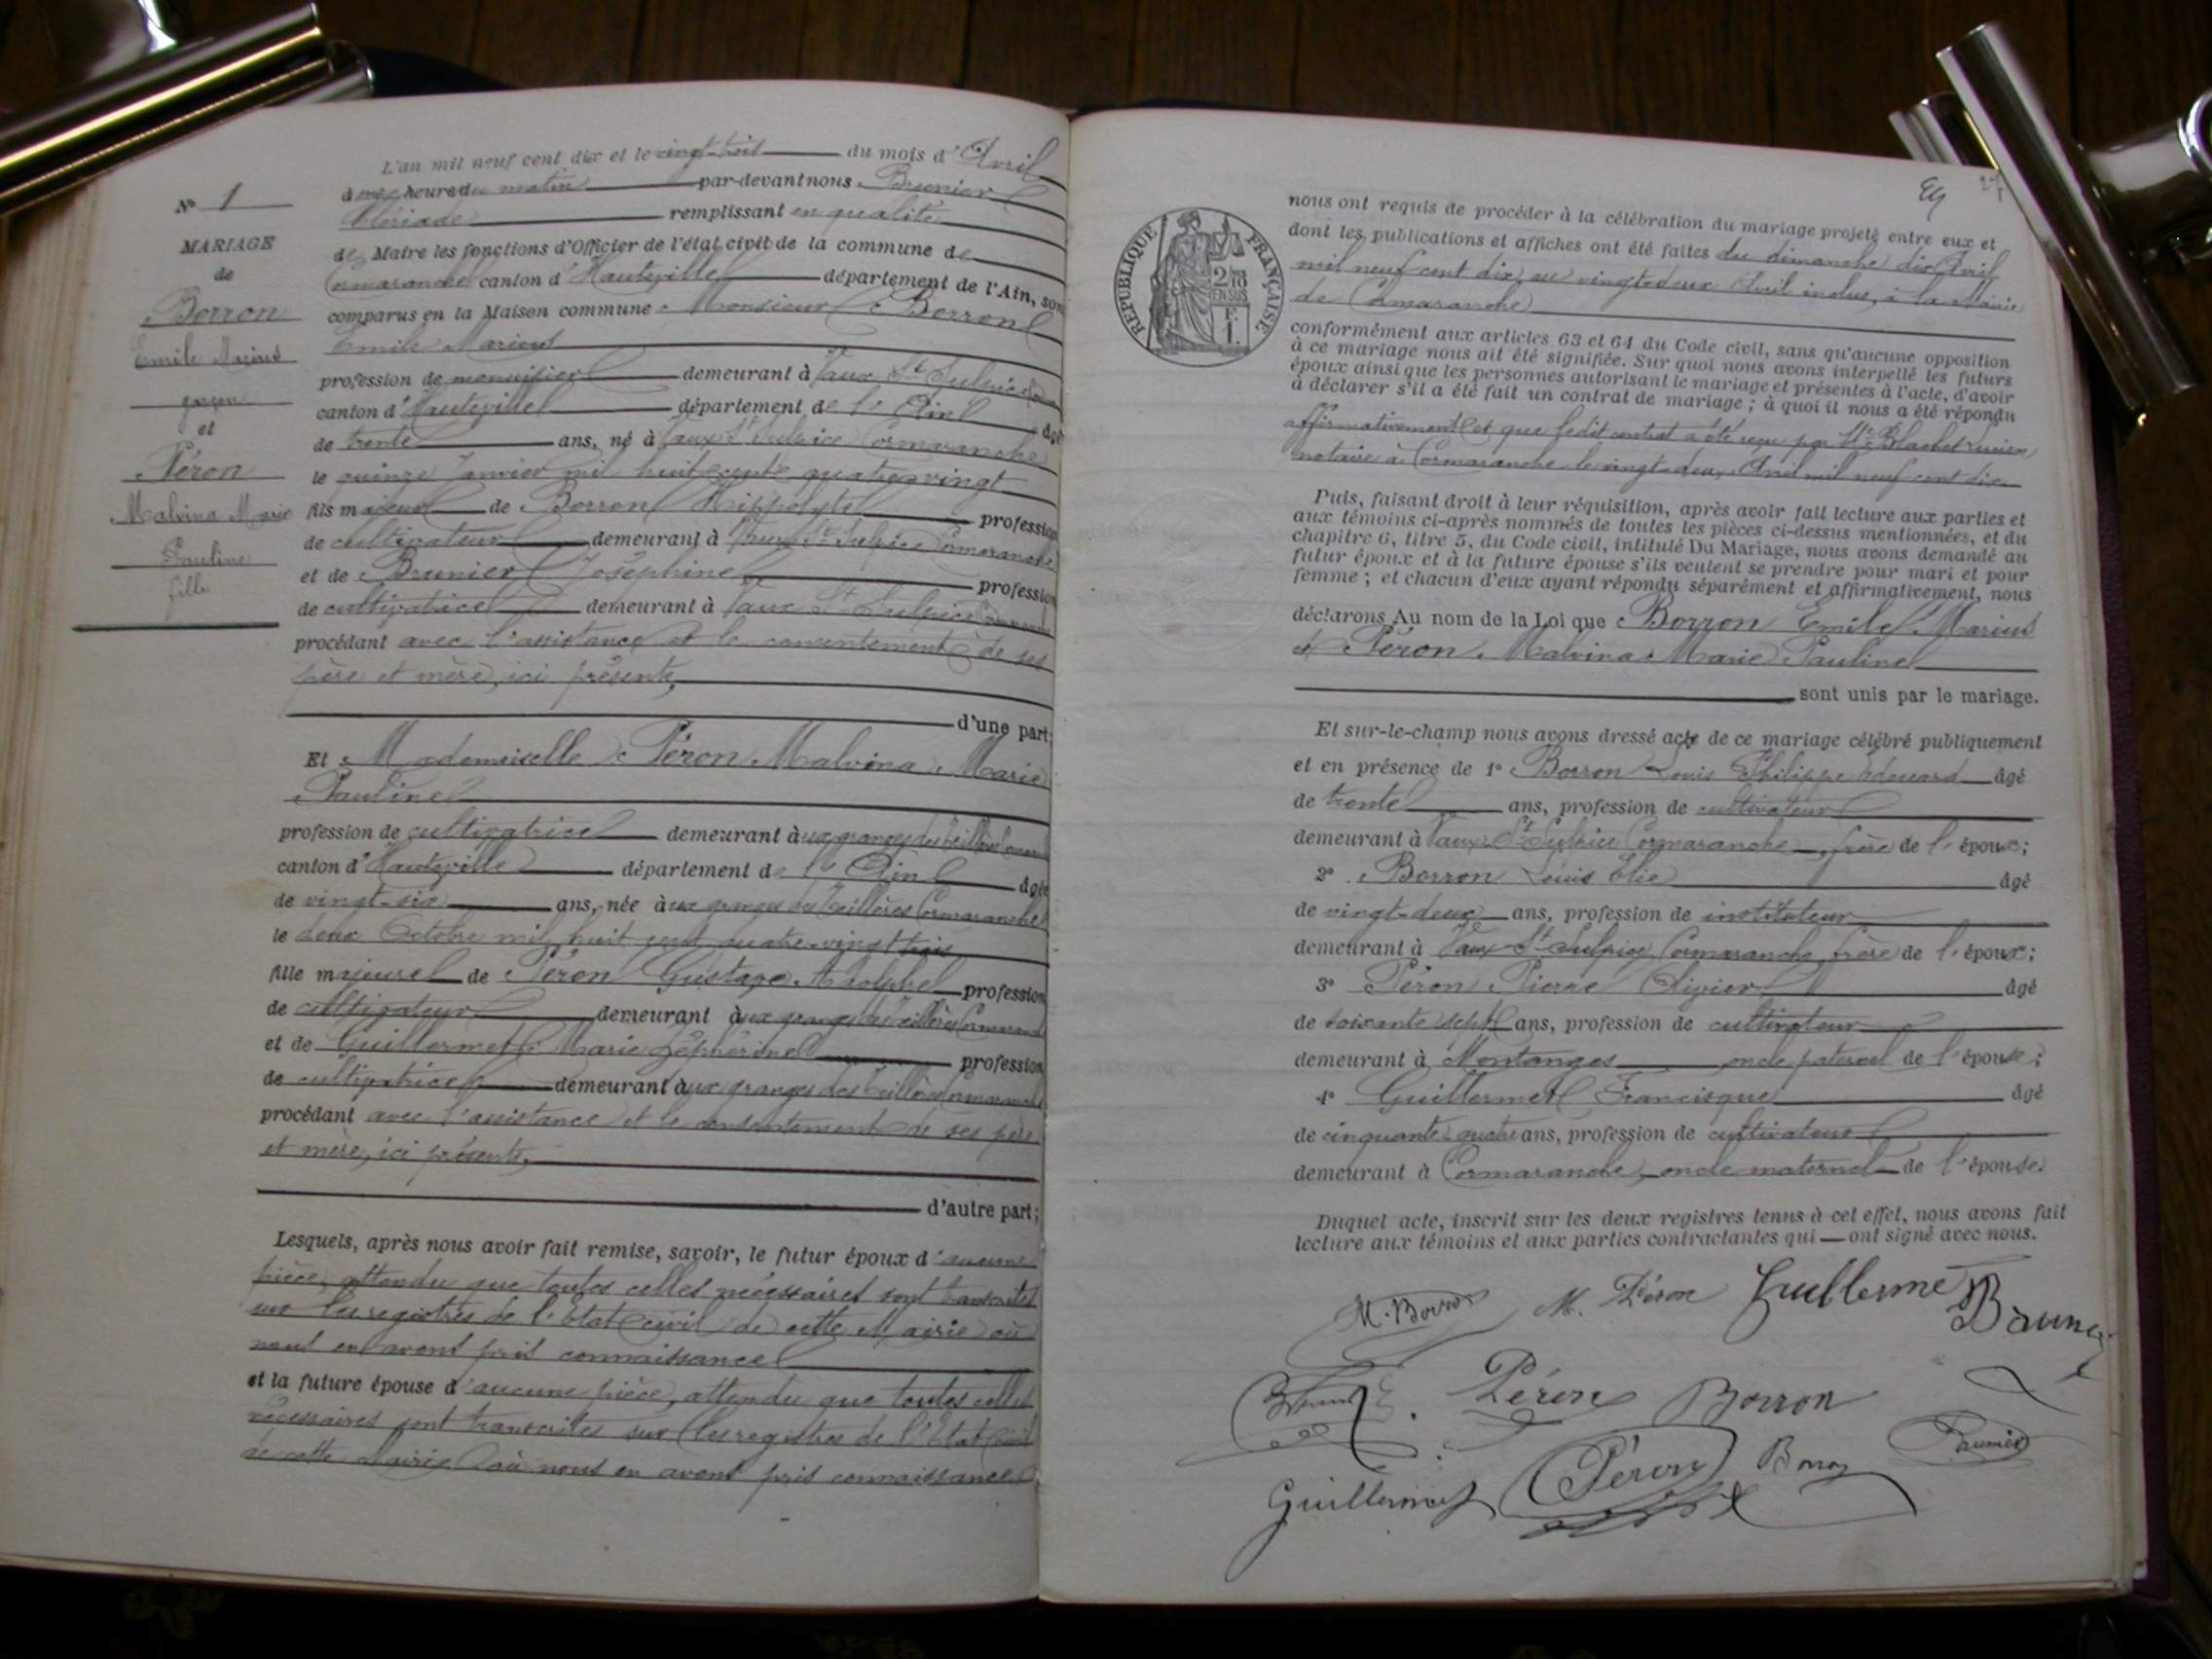 L'an mil neuf cent dix et le vingt-trois du mois d'Avril
à heure du matin par-devant nous Brunier
remplissant en qualité
de Maire les fonctions d'Officier de l'état civil de la commune de
Cormaranche canton d'Hauteville département de l'Ain, son
comparus en la Maison commune Monsieur Borron
Emile Marius
profession de menuisier demeurant à Vaux St Sulpice
canton d'Hauteville département de l'Ain âgé
de trente ans, né à Vaux St Sulpice Cormaranche
le quinze Janvier mil huit cent quatre vingt
fils majeur de Borron Hippolyte profession
de cultivateur demeurant à Vaux St Sulpice Cormaranche
et de Brunier Joséphine profession
de cultivatrice demeurant à Vaux St Sulpice
procédant avec l'assistance et le consentement de ses
père et mère, ici présents,
d'une part;
Et Mademoiselle Péron Malvina Marie
Pauline
profession de cultivatrice demeurant aux granges des
canton d'Hauteville département de l'Ain âgée
de vingt-six ans, née aux granges des Cormaranche
le deux Octobre mil huit cent quatre-vingt trois
fille majeure de Péron Gustave Adolphe profession
de cultivateur demeurant aux granges des
et de Guillermet Marie Zéphérine profession
de cultivatrice demeurant aux granges des
procédant avec l'assistance et le consentement de ses père
et mère, ici présents,
d'autre part;
Lesquels, après nous avoir fait remise, savoir, le futur époux d'aucune
pièce, attendu que toutes celles nécessaires sont transcrites
sur les registres de l'Etat civil de cette Mairie où
nous en avons pris connaissance
et la future épouse d'aucune pièce, attendu que toutes celles
nécessaires sont transcrites sur les registres de l'Etat civil
de cette Mairie où nous en avons pris connaissance
N° 1
MARIAGE
de
Borron
Emile Marius
garçon
et
Péron
Malvina Marie
Pauline
fille
RÉPUBLIQUE FRANÇAISE
2/10 EN SUS
F. 1.
nous ont requis de procéder à la célébration du mariage projeté entre eux et
dont les publications et affiches ont été faites du dimanche dix Avril
mil neuf cent dix au vingt-deux Avril inclus, à la Mairie
de Cormaranche
conformément aux articles 63 et 64 du Code civil, sans qu'aucune opposition
à ce mariage nous ait été signifiée. Sur quoi nous avons interpellé les futurs
époux ainsi que les personnes autorisant le mariage et présentes à l'acte, d'avoir
à déclarer s'il a été fait un contrat de mariage; à quoi il nous a été répondu
affirmativement et que ledit contrat a été reçu par Me Blachet Lucien
notaire à Cormaranche le vingt-deux Avril mil neuf cent dix
Puis, faisant droit à leur réquisition, après avoir fait lecture aux parties et
aux témoins ci-après nommés de toutes les pièces ci-dessus mentionnées, et du
chapitre 6, titre 5, du Code civil, intitulé Du Mariage, nous avons demandé au
futur époux et à la future épouse s'ils veulent se prendre pour mari et pour
femme; et chacun d'eux ayant répondu séparément et affirmativement, nous
déclarons Au nom de la Loi que Borron Emile Marius
et Péron Malvina Marie Pauline
sont unis par le mariage.
Et sur-le-champ nous avons dressé acte de ce mariage célébré publiquement
et en présence de 1° Borron Louis Philippe Edouard âgé
de trente ans, profession de cultivateur
demeurant à Vaux St Sulpice Cormaranche, frère de l'époux;
2° Borron Louis Elie âgé
de vingt-deux ans, profession de instituteur
demeurant à Vaux St Sulpice Cormaranche frère de l'époux;
3° Péron Pierre Olivier âgé
de soixante sept ans, profession de cultivateur
demeurant à Montanges oncle paternel de l'épouse;
4° Guillermet Francisque âgé
de cinquante quatre ans, profession de cultivateur
demeurant à Cormaranche, oncle maternel de l'épouse
Duquel acte, inscrit sur les deux registres tenus à cet effet, nous avons fait
lecture aux témoins et aux parties contractantes qui ont signé avec nous.
M. Borron M. Péron Guillermet
Péron Borron
Guillermet Péron Borron Brunier